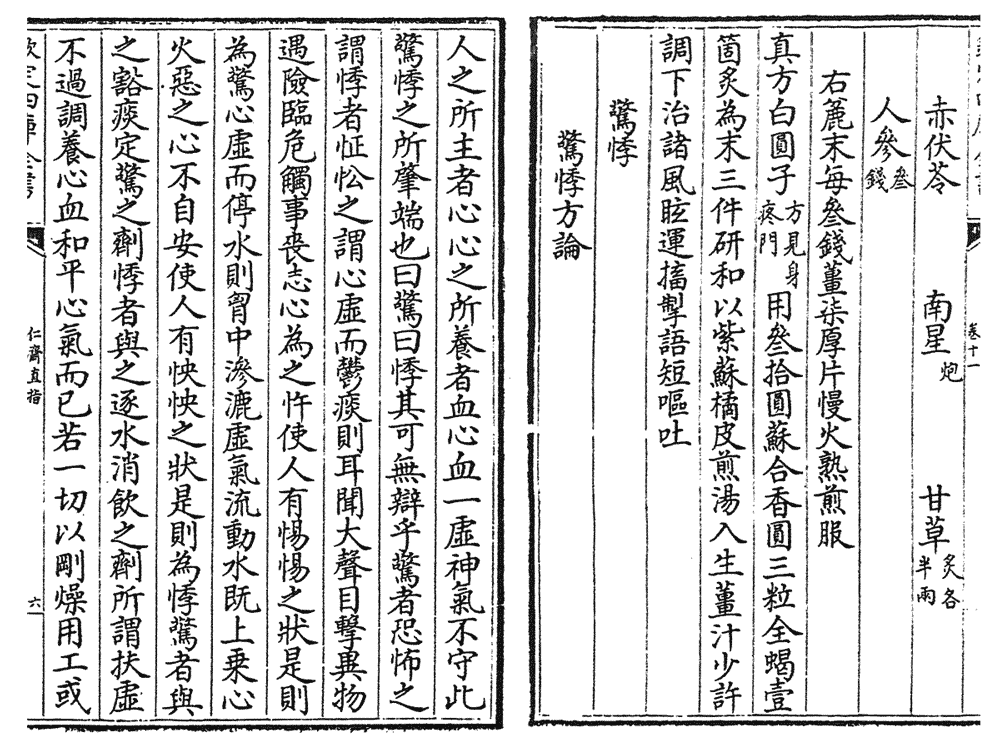 赤伏苓 南星炮 甘草炙各半兩
人參叁錢
右麄末每叁錢薑柒厚片慢火熟煎服
真方白圓子方見身疼門用叁拾圓蘇合香圓三粒全蝎壹
箇炙為末三件研和以紫蘇橘皮煎湯入生薑汁少許
調下治諸風眩運搐掣語短嘔吐
驚悸
驚悸方論
卷十一
人之所主者心心之所養者血心血一虛神氣不守此
驚悸之所肇端也曰驚曰悸其可無辯乎驚者恐怖之
謂悸者怔忪之謂心虛而鬱痰則耳聞大聲目擊異物
遇險臨危觸事喪志心為之忤使人有惕惕之狀是則
為驚心虛而停水則胷中滲漉虛氣流動水既上乗心
火惡之心不自安使人有怏怏之狀是則為悸驚者與
之豁痰定驚之劑悸者與之逐水消飲之劑所謂扶虛
不過調養心血和平心氣而已若一切以剛燥用工或
欽定四庫全書
仁齋直指
六